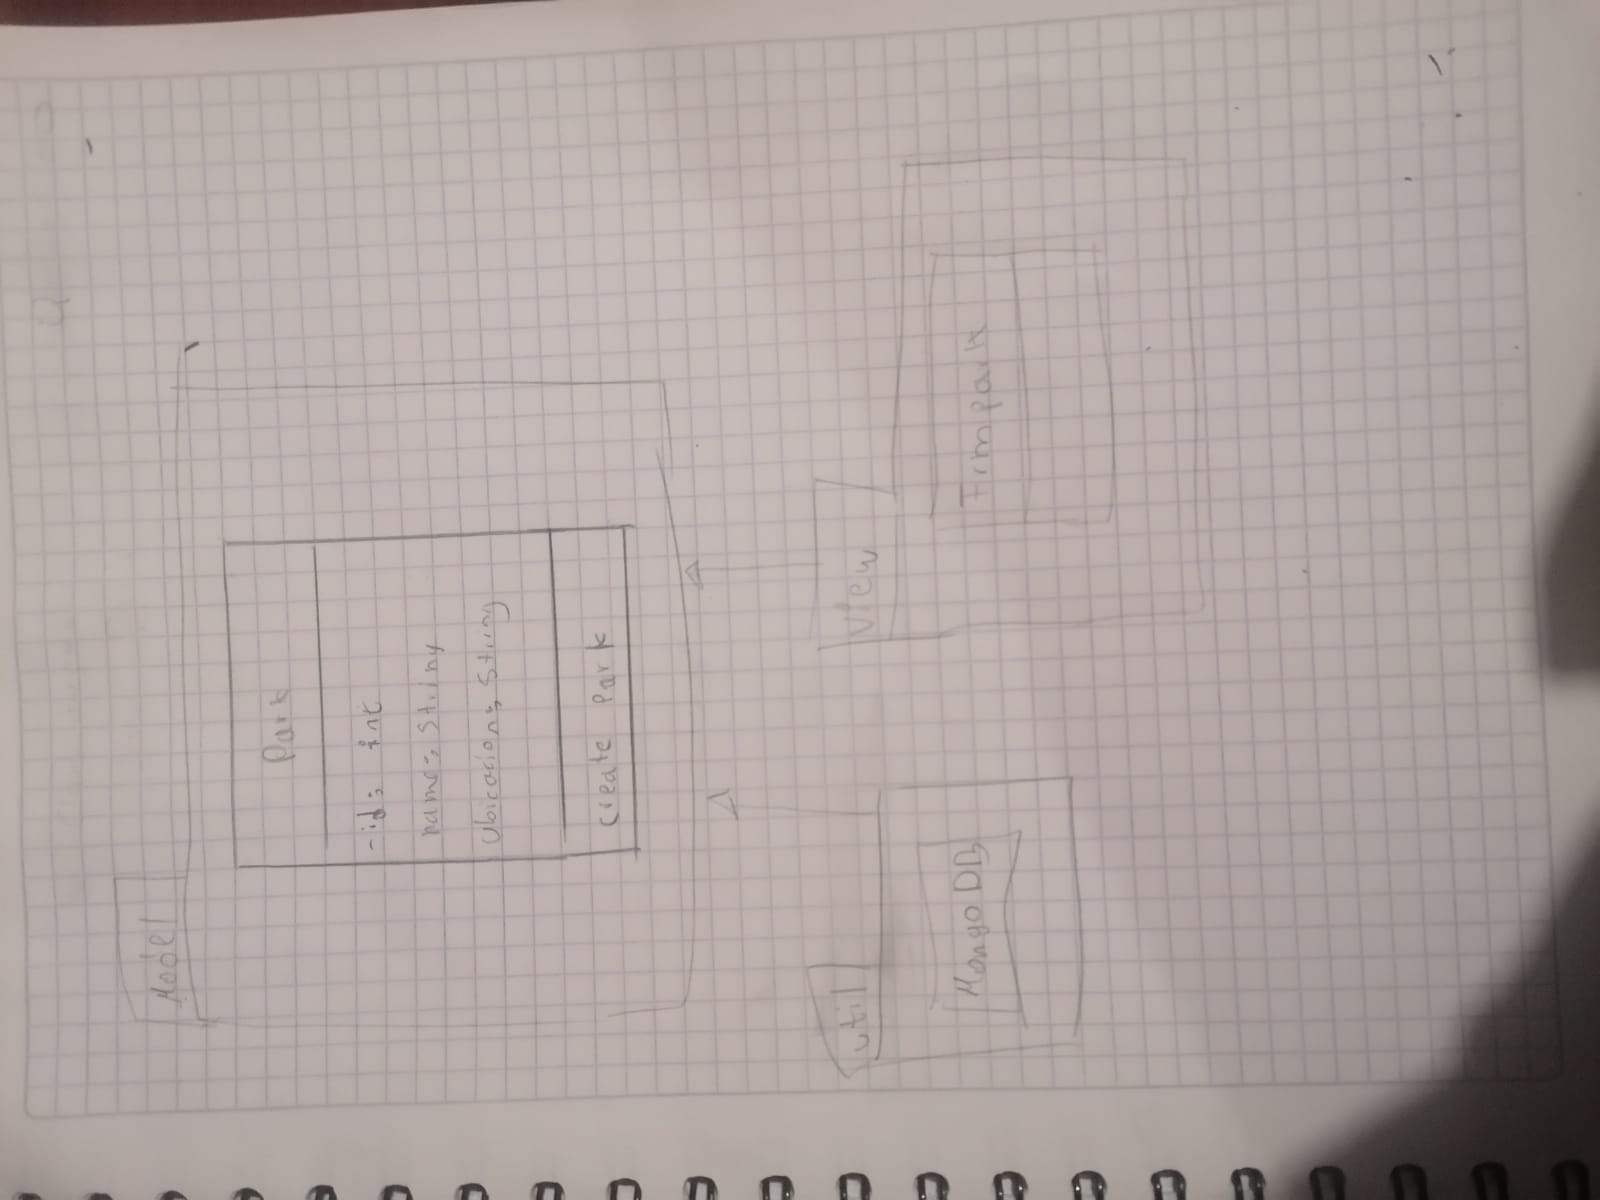 Model
Park
-id: int
name: String
Ubicacion: String
Create Park
util
MongoDB
View
Frmpark